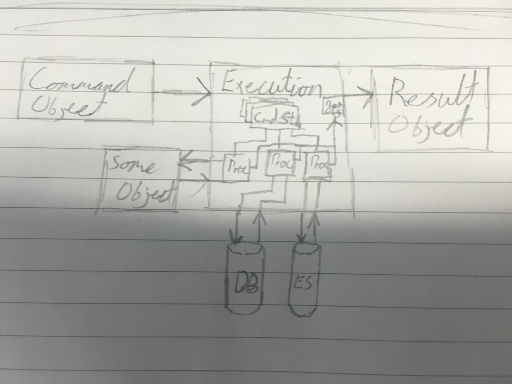 Command
Object
Execution
Cmd St
Res
Result
Object
Some
Object
Proc
Proc
Proc
DB
ES